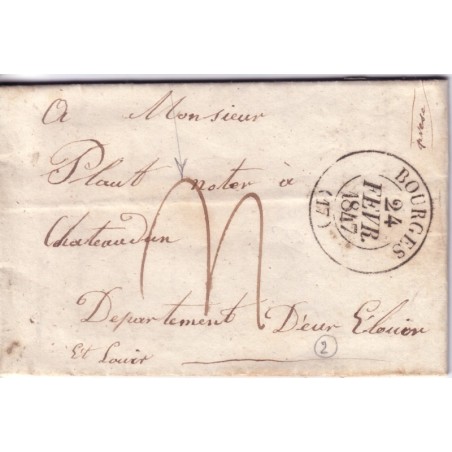 A Monsieur
Plaut noter à
Chateaudun
Departement D'eur Eloior
Et Louir
BOURGES
24
FEVR
1847
(17)
2